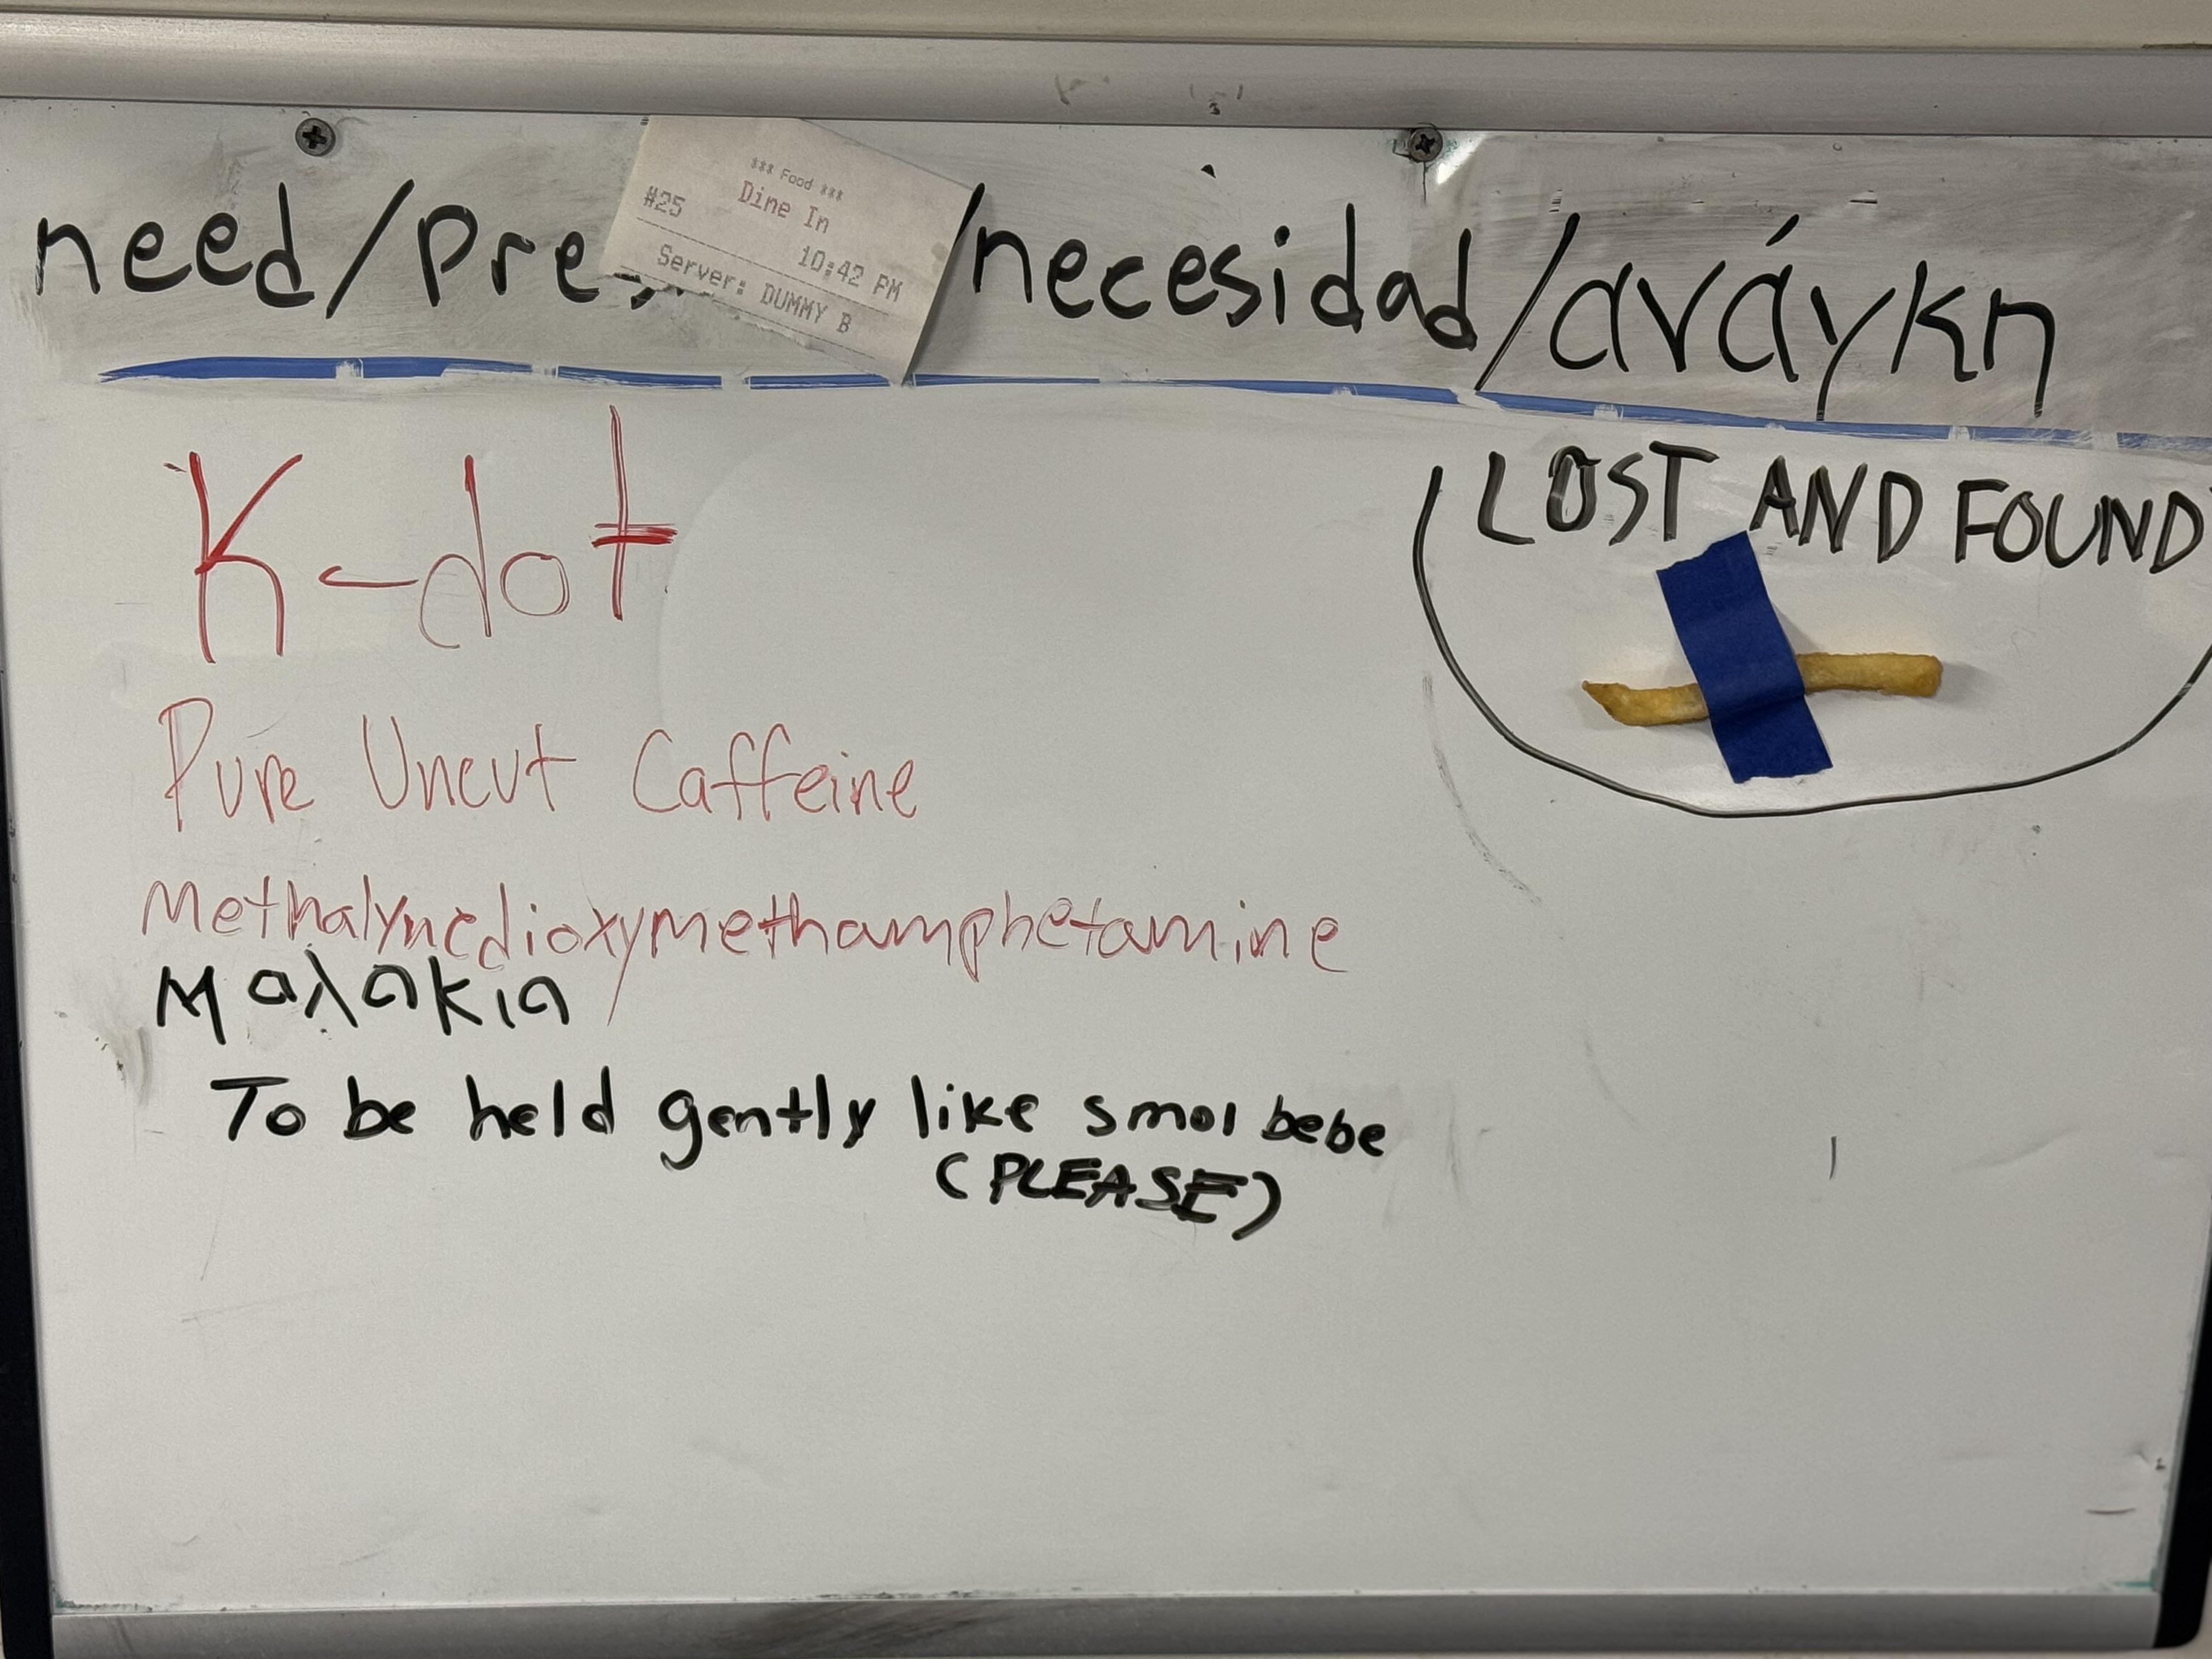 need/pre /necesidad/ανάγκη
*** Food ***
Dine In
#25
10:42 PM
Server: DUMMY B
LOST AND FOUND
K-dot
Pure Uncut Caffeine
Methalynedioxymethamphetamine
Μαλακια
To be held gently like smol bebe
(PLEASE)